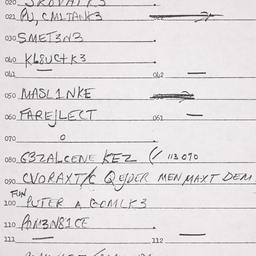 020
021 PU, CMLTANK3
030 SMET3N3
040 KL8UCTK3
041 042
050 MASL1NKE
060 FAREJLECT 061
070 0
080 G3ZALCENE KEZ 113 070
090 MEN MAXT DEM
FUN
100 PUTER A GOMLK3
110 POM3N81CE
111 112